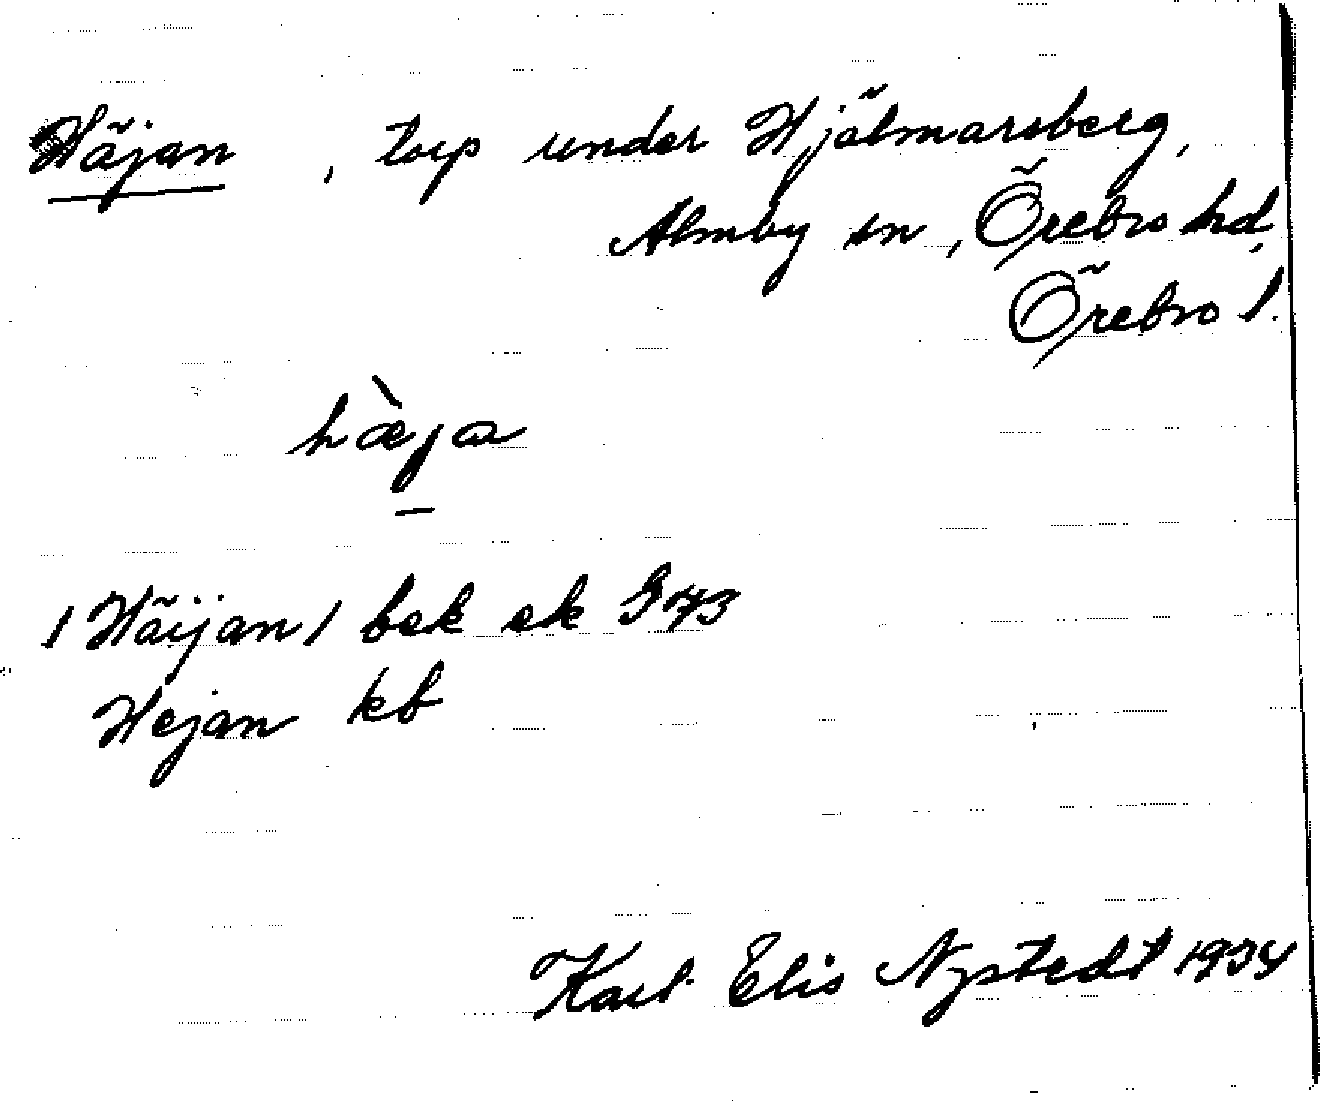 Häjan, torp under Hjälmarsberg,
Almby sn, Örebro hd,
Örebro l.
hæ̀ja
/Häijan/ bek ek G 73
Hejan kb
Karl Elis Nystedt 1934